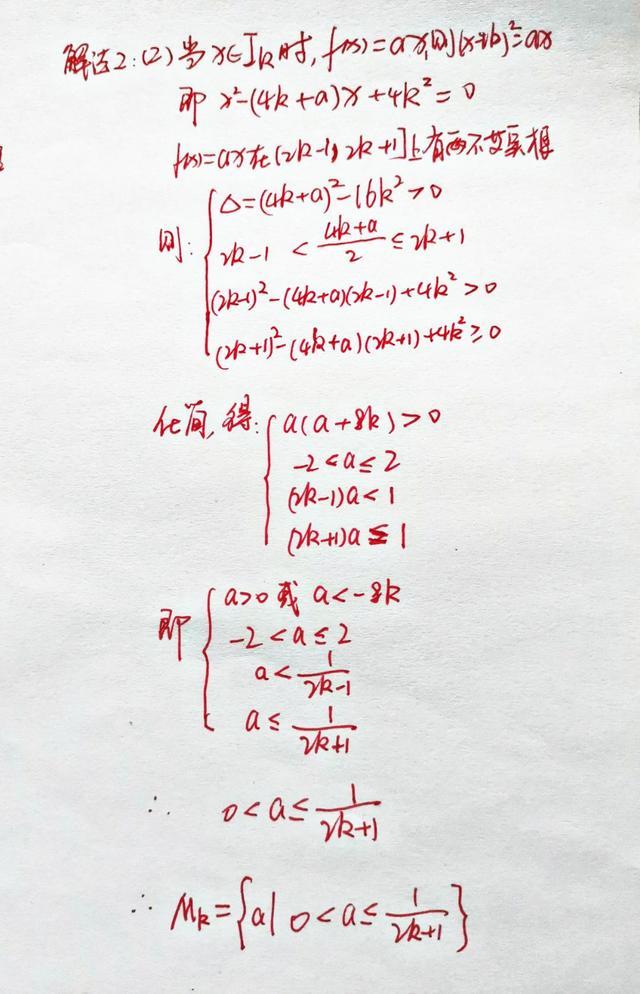 解法2:(2)当x∈I_k时,f(x)=ax,则(x-2k)²=ax
即 x²-(4k+a)x+4k²=0
f(x)=ax在(2k-1,2k+1]上有两不等实根
则:{ Δ=(4k+a)²-16k²>0
2k-1 < (4k+a)/2 ≤ 2k+1
(2k-1)²-(4k+a)(2k-1)+4k²>0
(2k+1)²-(4k+a)(2k+1)+4k²≥0
化简,得:{ a(a+8k)>0
-2<a≤2
(2k-1)a<1
(2k+1)a≤1
即{ a>0 或 a<-8k
-2<a≤2
a<1/(2k-1)
a≤1/(2k+1)
∴ 0<a≤1/(2k+1)
∴ M_k={a| 0<a≤1/(2k+1)}